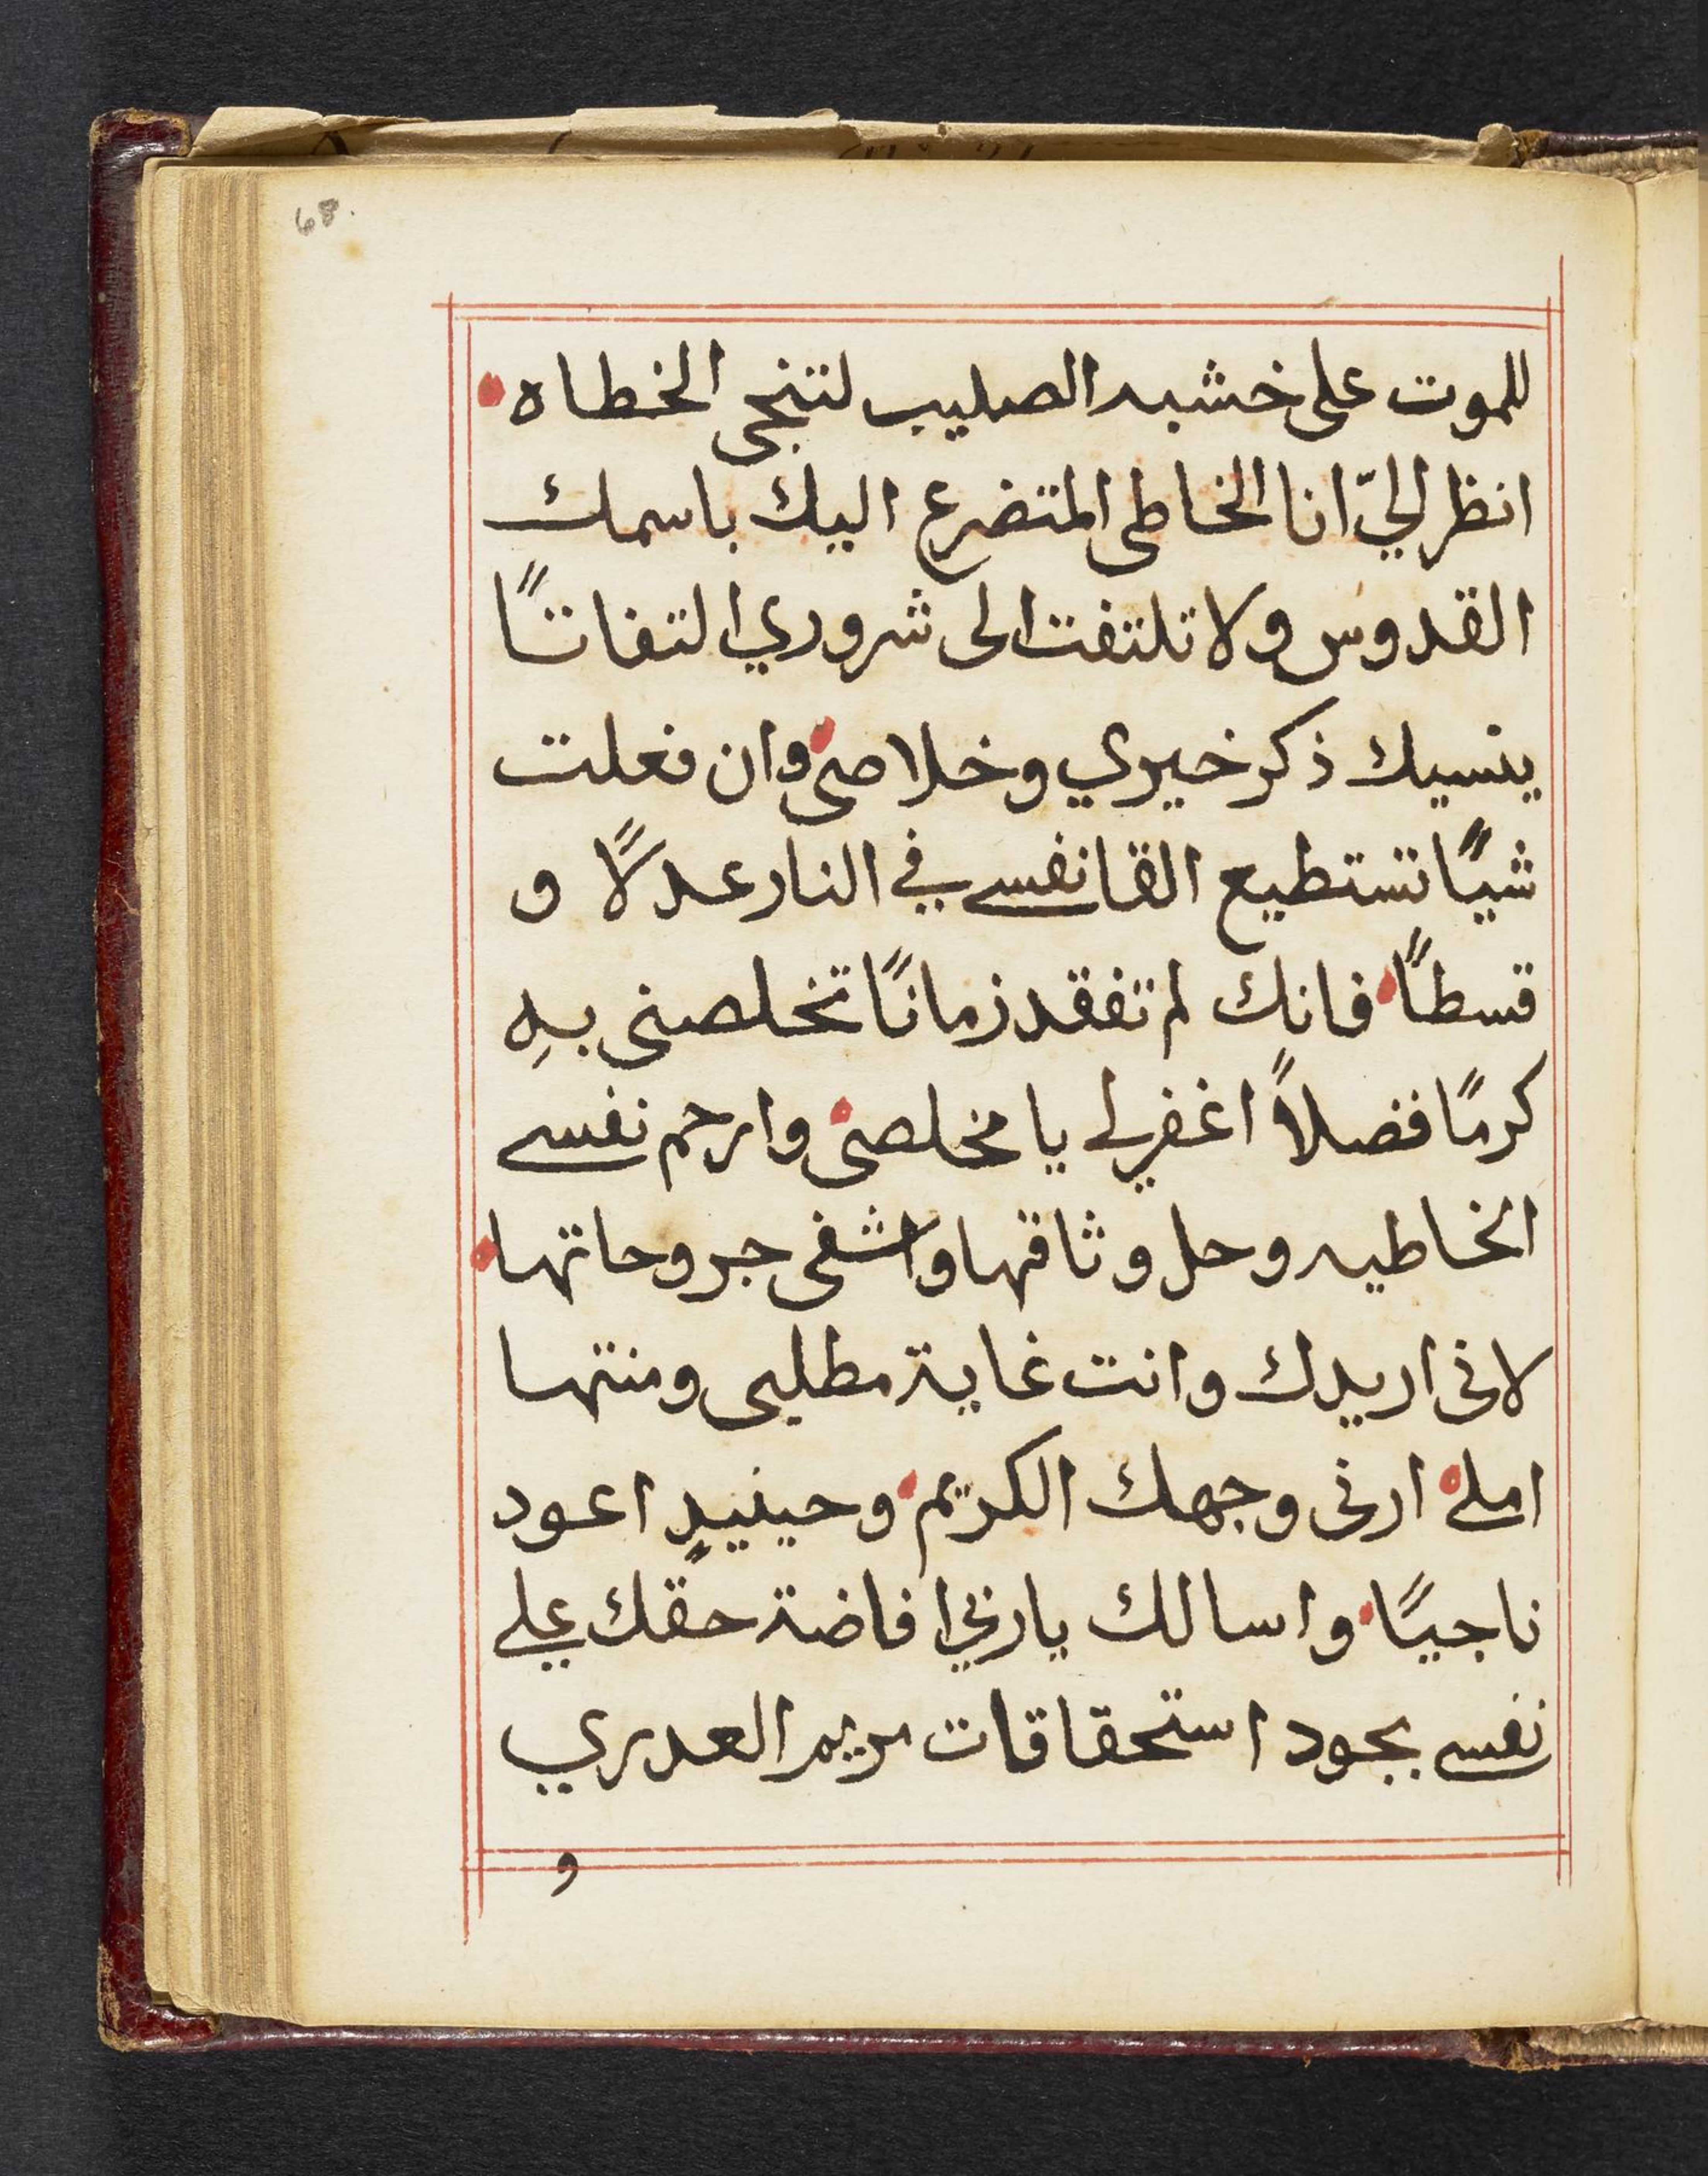 68.
للموت على خشبه الصليب لتنجى الخطاه
انظر اليّ انا الخاطى المتضرع اليك باسمك
القدوس ولا تلتفت الى شروري التفاتًا
ينسيك ذكر خيري وخلاصى وان فعلت
شيًا تستطيع القا نفسي في النار عدلًا و
قسطًا فانك لم تفقد زمانًا تخلصنى بهِ
كرمًا فضلاً اغفر لي يا مخلصى وارحم نفسي
الخاطيه وحل وثاقها واشفى جروحاتها
لانى اريدك وانت غاية مطلبى ومنتها
املي ارنى وجهك الكريم وحينيدٍ اعود
ناجيًا واسالك يا ربي افاضة حقك علي
نفسي بجود استحقاقات مريم العدري
و